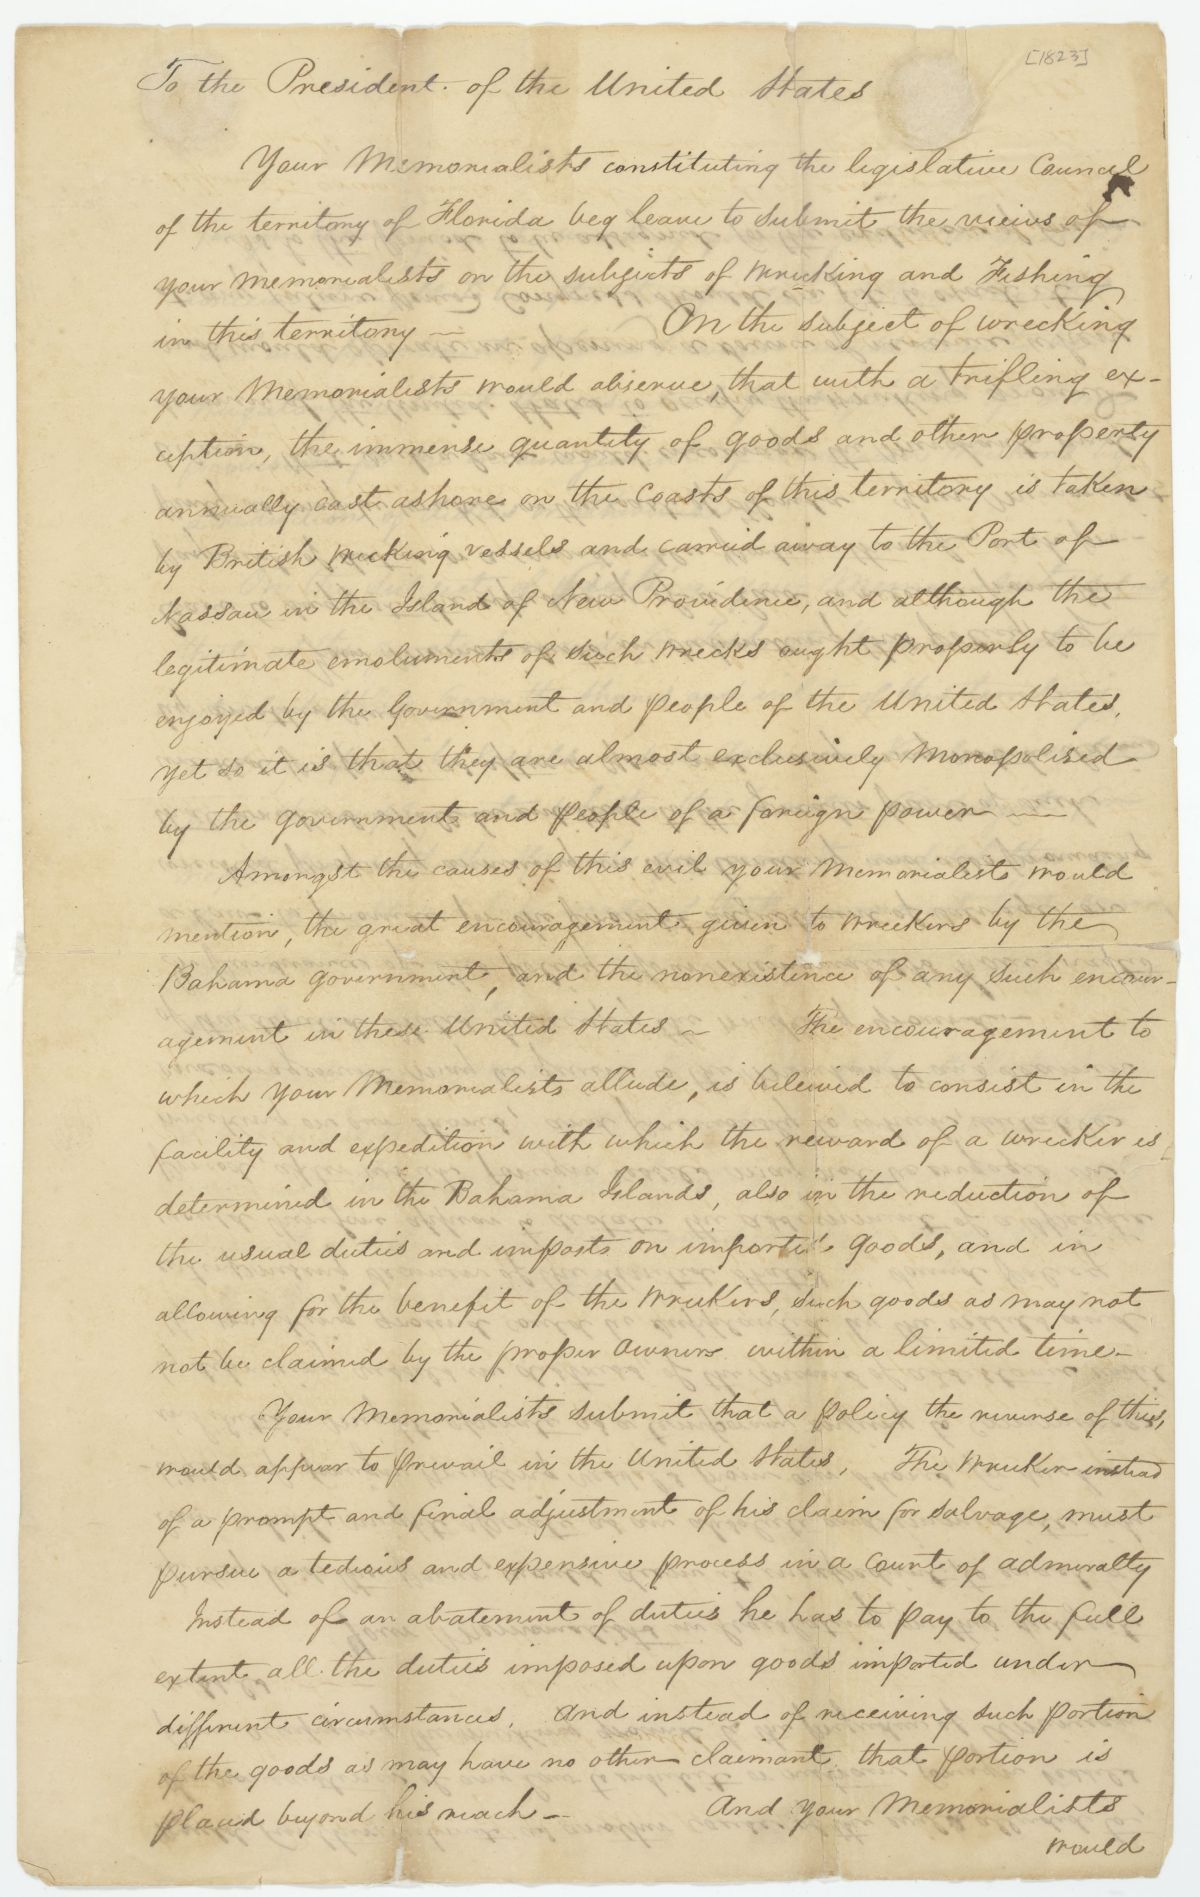 [1823]
To the President of the United States
Your Memorialists constituting the legislative Council
of the territory of Florida beg leave to submit the views of
your memorialists on the subjects of wrecking and Fishing
in this territory — On the subject of wrecking
your Memorialists would observe, that with a trifling ex-
ception, the immense quantity of goods and other property
annually cast ashore on the Coasts of this territory is taken
by British wrecking vessels and carried away to the Port of
Nassau in the Island of New Providence, and although the
legitimate emoluments of such wrecks ought properly to be
enjoyed by the Government and people of the United States,
yet so it is that they are almost exclusively Monopolised
by the government and people of a foreign power —
Amongst the causes of this evil your Memorialists would
mention, the great encouragement given to wreckers by the
Bahama government, and the nonexistence of any such encour-
agement in these United States — The encouragement to
which your Memorialists allude, is beleived to consist in the
facility and expedition with which the reward of a wrecker is
determined in the Bahama Islands, also in the reduction of
the usual duties and imposts on imported goods, and in
allowing for the benefit of the Wreckers, such goods as may not
not be claimed by the proper Owners within a limited time—
Your Memorialists submit that a policy the reverse of this,
would appear to prevail in the United States, The Wrecker instead
of a prompt and final adjustment of his claim for salvage, must
pursue a tedious and expensive process in a Court of admiralty
Instead of an abatement of duties he has to pay to the full
extent all the duties imposed upon goods imported under
different circumstances. And instead of receiving such portion
of the goods as may have no other claimant that portion is
placed beyond his reach — And your Memorialists
would